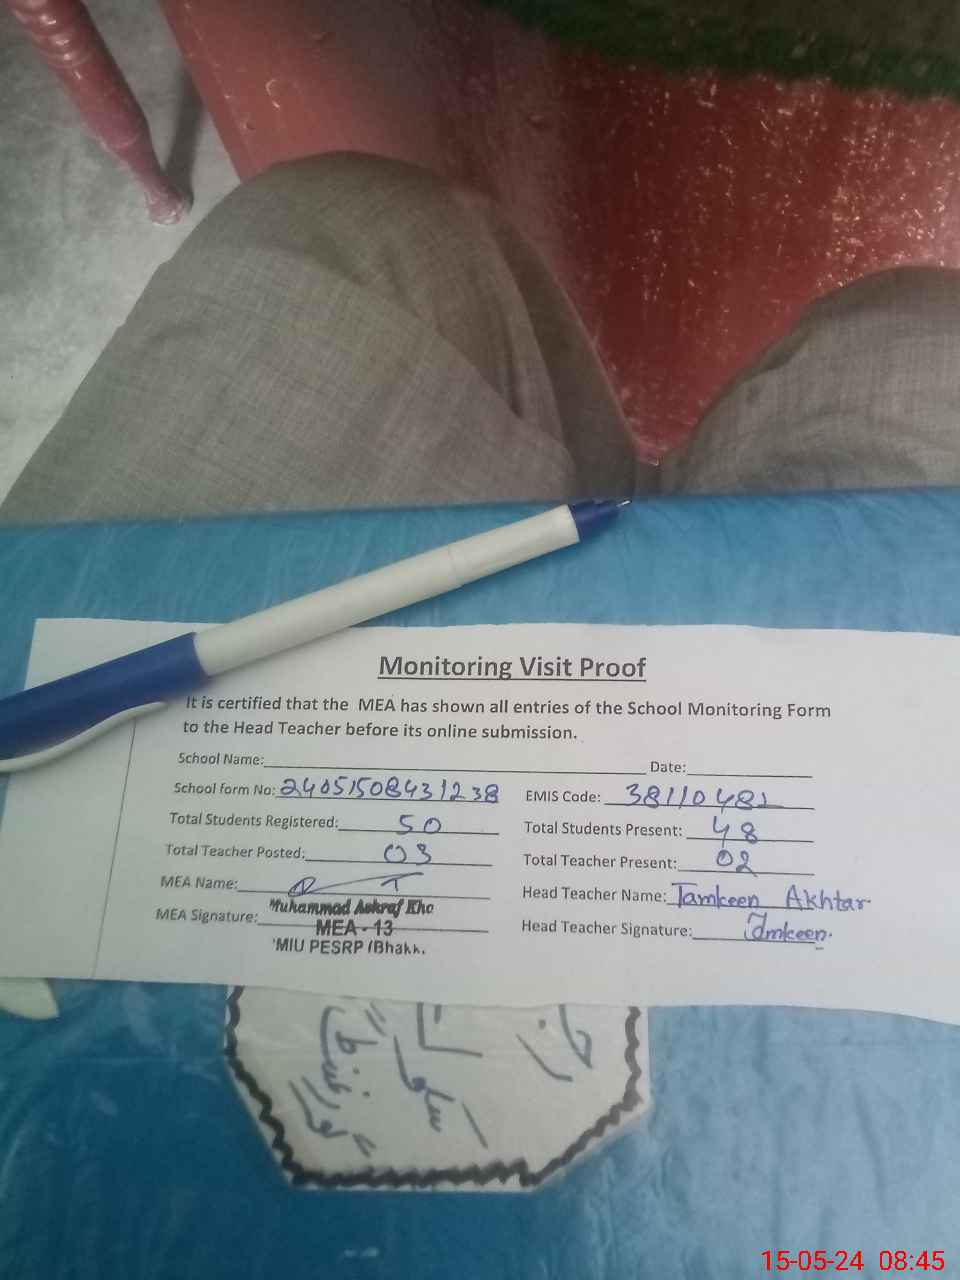 Monitoring Visit Proof
It is certified that the MEA has shown all entries of the School Monitoring Form
to the Head Teacher before its online submission.
School Name: Date:
School form No: 24051508431238 EMIS Code: 38110482
Total Students Registered: 50 Total Students Present: 48
Total Teacher Posted: 03 Total Teacher Present: 02
MEA Name: Head Teacher Name: Tamkeen Akhtar
MEA Signature: Muhammad Ashraf Kha Head Teacher Signature: Tamkeen.
MEA - 13
MIU PESRP (Bhakk.
15-05-24 08:45